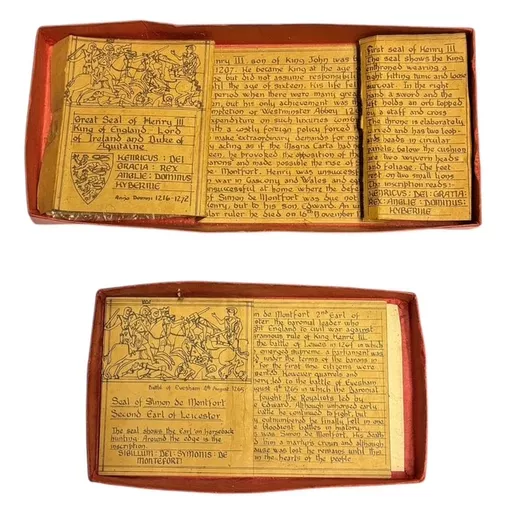 Great Seal of Henry III
King of England. Lord
of Ireland and Duke of
Aquitaine
HENRICUS : DEI
GRACIA : REX
ANGLIE : DOMINUS
HYBERNIE
1216-1272
nry III son of King John was b
1207. He became King at the age
he but did not assume responsibili
til the age of sixteen. His life
period when there were many great
en, but his only achievement was t
mpletion of Westminster Abbey 12
expenditure on such luxuries comb
with a costly foreign policy forced
make extraordinary demands for mo
y acting as if the Magna Carta had
een, he provoked the opposition of the
barons and made possible the rise of
Montfort. Henry was unsuccess
war in Gascony and Wales and eq
unsuccessful at home where the def
of Simon de Montfort was due not
Henry, but to his son Edward. An un
ular ruler he died on 16th November
First seal of Henry III
The seal shows the King
enthroned wearing a
tight fitting tunic and loose
In the right
hand a sword and the
left holds an orb topped
by a staff and cross
The throne is elaborately
carved and has two loop-
heads in circular
panels, below the cushion
are two wyvern heads
and foliage. The feet
rest on two small lions
The inscription reads:-
HENRICUS : DEI : GRATIA:
REX : ANGLIE : DOMINUS:
HYBERNIE
Battle of Evesham 4th August 1265
Seal of Simon de Montfort
Second Earl of Leicester
The seal shows the Earl on horseback
hunting. Around the edge is the
inscription.
SIGILLUM : DEI : SYMONIS : DE
MONTEFORTI
on de Montfort 2nd Earl of
ster the baronial leader who
ght England to civil war against
rule of king Henry III.
the battle of Lewes in 1264 in which
emerged supreme a parliament was
under the terms of the barons in
for the first time citizens were
sented. However quarrels and
led to the battle of Evesham
ust 4th 1265 in which the baronial
fought the Royalists led by
e Edward. Although unhorsed early
battle he continued to fight, but
outnumbered he finally fell in one
e bloodiest battles in history
was Simon de Montfort. His death
d him a martyrs crown and although
ause was lost he remains until this
in the hearts of the people